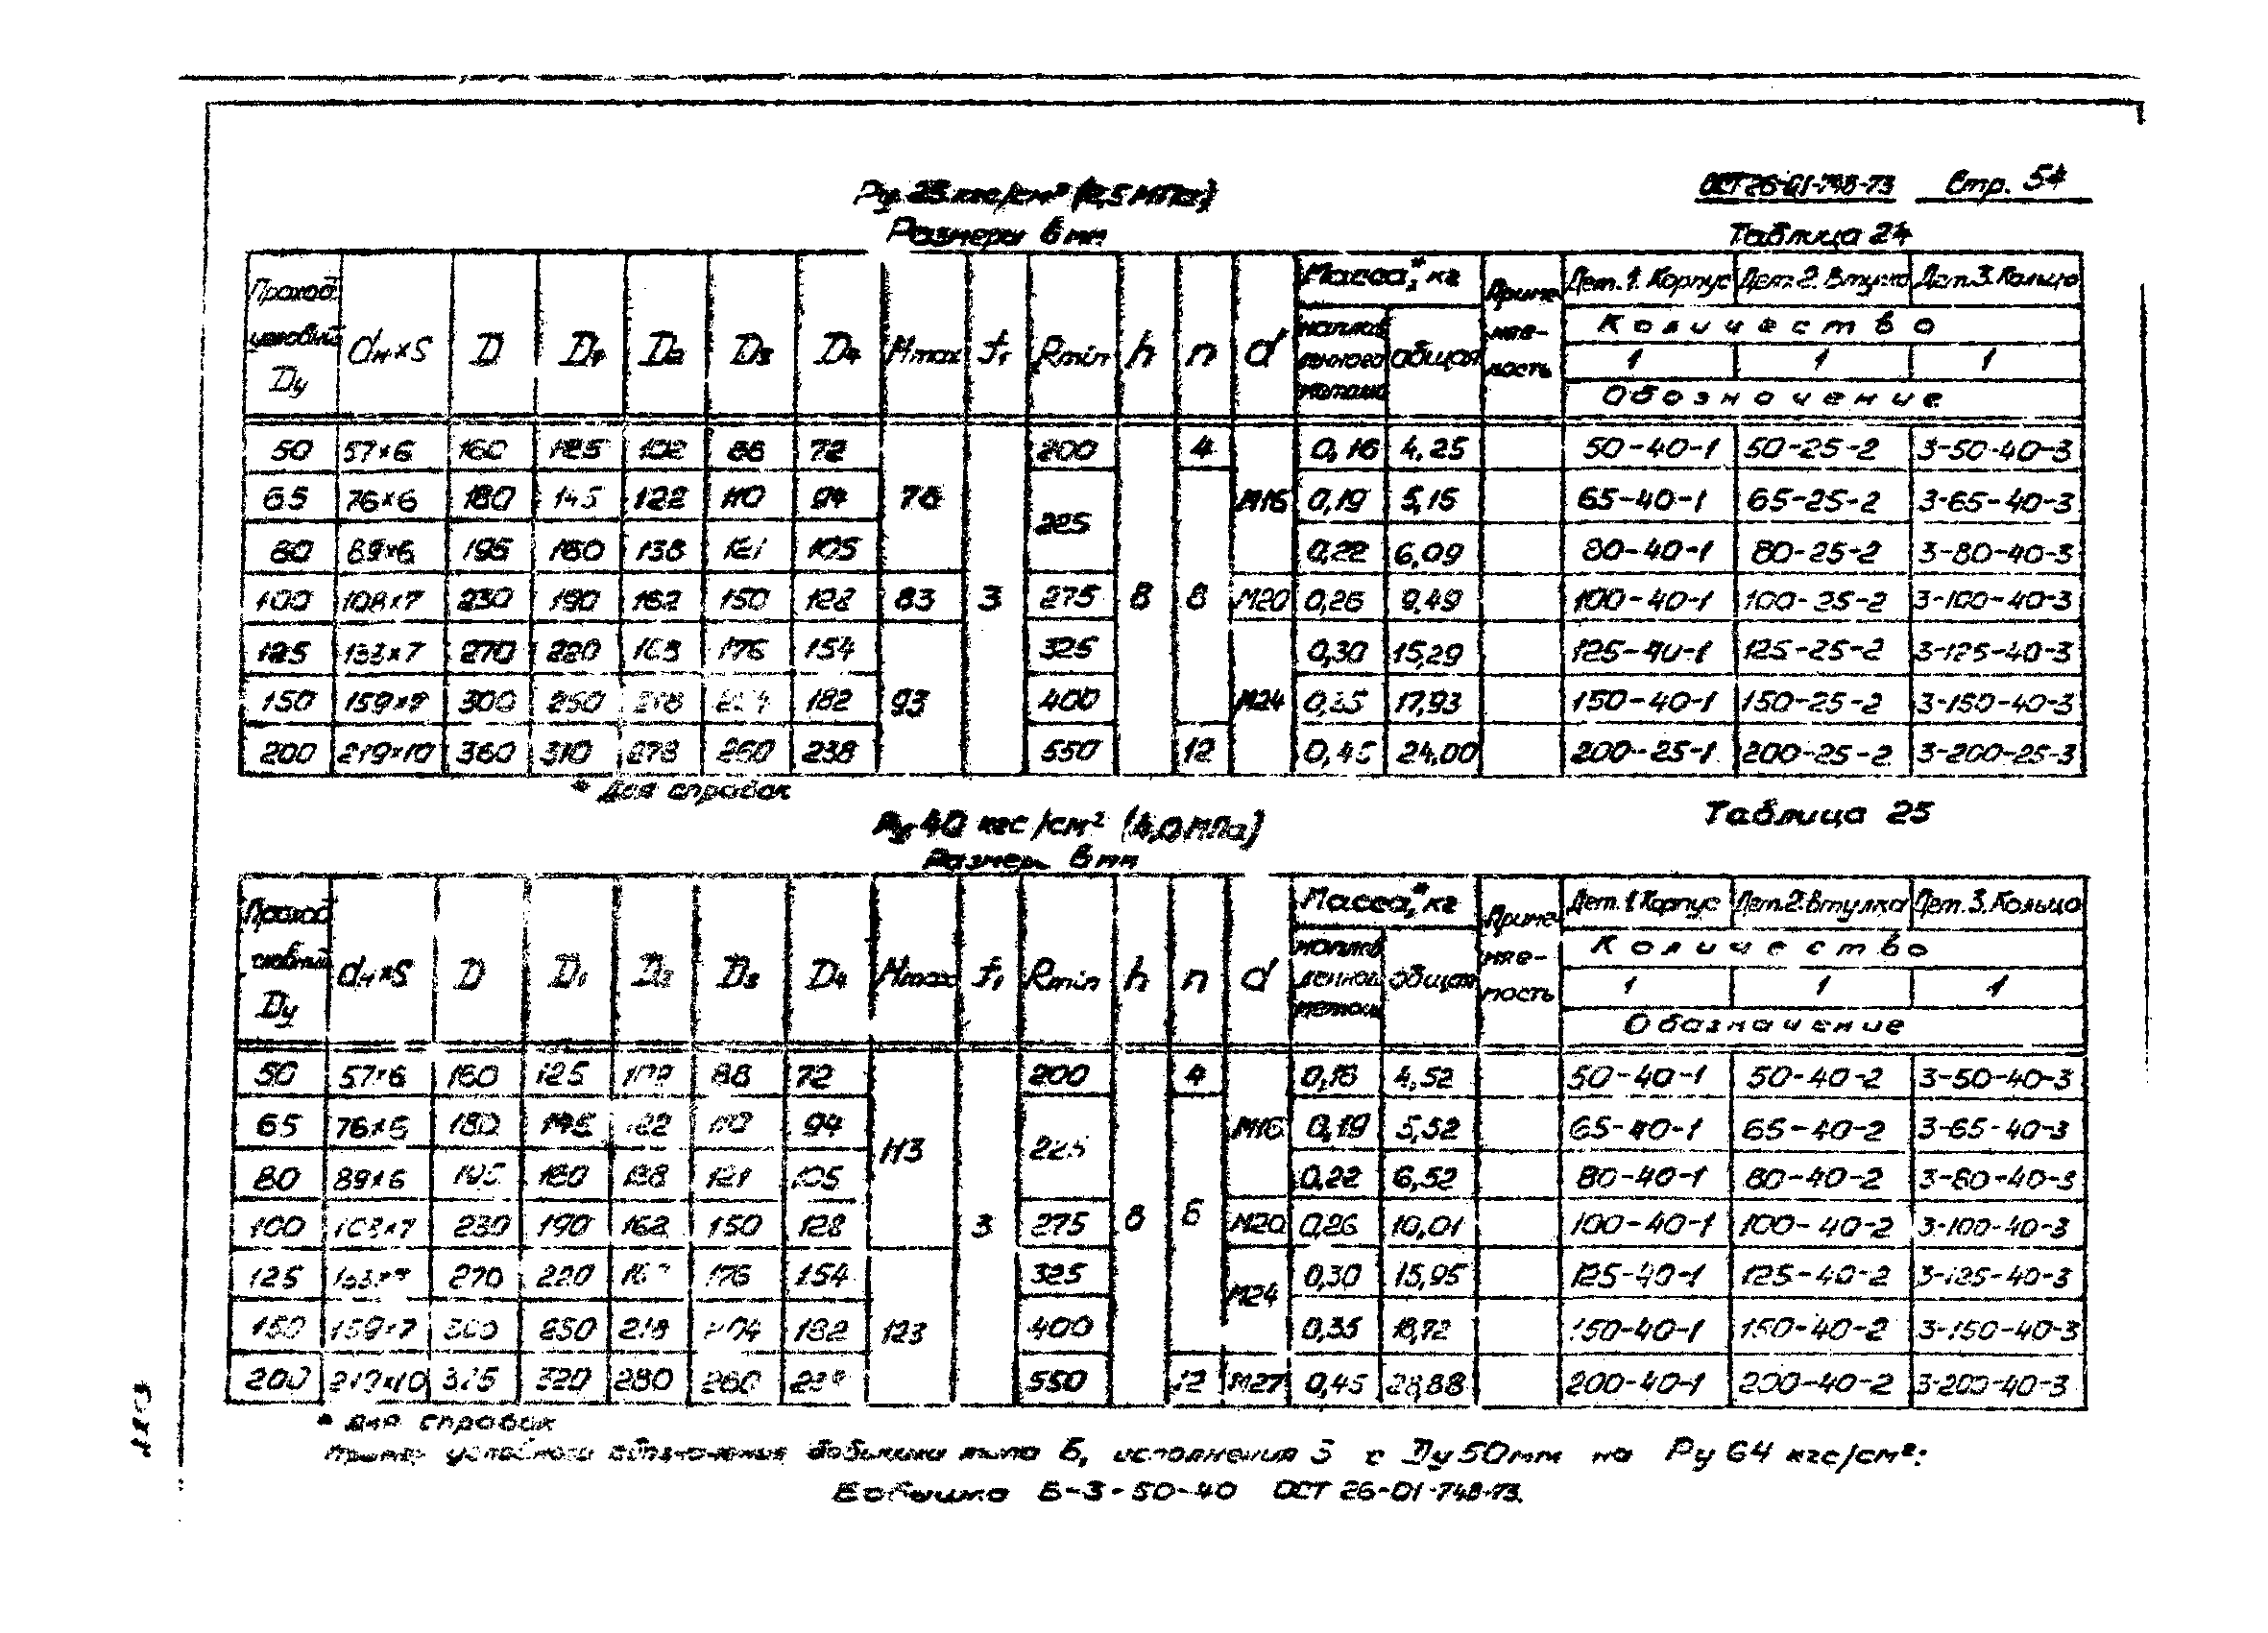 ОСТ 26-01-748-73 Стр. 54
Ру 25 кгс/см² (2,5 МПа)
Размеры в мм
Таблица 24
Проход условный Dу | dн×S | D | D1 | D2 | D3 | D4 | Hmax | f1 | Rmin | h | n | d | Масса,* кг | Приме- няе- мость | Дет. 1. Корпус | Дет. 2. Втулка | Дет. 3. Кольцо
наплав ленного металла | общая | Количество
1 | 1 | 1
Обозначение
50 | 57×6 | 160 | 125 | 102 | 88 | 72 | 200 | 4 | 0,16 | 4,25 | 50-40-1 | 50-25-2 | 3-50-40-3
65 | 76×6 | 180 | 145 | 122 | 110 | 94 | 78 | 225 | М16 | 0,19 | 5,15 | 65-40-1 | 65-25-2 | 3-65-40-3
80 | 89×6 | 195 | 160 | 138 | 121 | 105 | 0,22 | 6,09 | 80-40-1 | 80-25-2 | 3-80-40-3
100 | 108×7 | 230 | 190 | 162 | 150 | 128 | 83 | 3 | 275 | 8 | 8 | М20 | 0,26 | 9,49 | 100-40-1 | 100-25-2 | 3-100-40-3
125 | 133×7 | 270 | 220 | 176 | 154 | 325 | 0,30 | 15,29 | 125-40-1 | 125-25-2 | 3-125-40-3
150 | 159×7 | 300 | 250 | 218 | 182 | 93 | 400 | М24 | 0,35 | 17,93 | 150-40-1 | 150-25-2 | 3-150-40-3
200 | 219×10 | 360 | 310 | 278 | 260 | 238 | 550 | 12 | 0,45 | 24,00 | 200-25-1 | 200-25-2 | 3-200-25-3
* Для справок
Ру 40 кгс/см² (4,0 МПа)
Таблица 25
Размеры в мм
Проход Dу | dн×S | D | D1 | D2 | D3 | D4 | Hmax | f1 | Rmin | h | n | d | Масса,* кг | Приме- няе- мость | Дет. 1. Корпус | Дет. 2. Втулка | Дет. 3. Кольцо
наплав | общая | Количество
1 | 1 | 1
Обозначение
50 | 57×6 | 160 | 125 | 102 | 88 | 72 | 200 | 4 | 0,16 | 4,52 | 50-40-1 | 50-40-2 | 3-50-40-3
65 | 76×6 | 180 | 145 | 122 | 110 | 94 | 113 | 225 | М16 | 0,19 | 5,52 | 65-40-1 | 65-40-2 | 3-65-40-3
80 | 89×6 | 195 | 160 | 138 | 121 | 105 | 0,22 | 6,52 | 80-40-1 | 80-40-2 | 3-80-40-3
100 | 108×7 | 230 | 190 | 162 | 150 | 128 | 3 | 275 | 8 | М20 | 0,26 | 10,01 | 100-40-1 | 100-40-2 | 3-100-40-3
125 | 133×7 | 270 | 220 | 176 | 154 | 325 | М24 | 0,30 | 15,95 | 125-40-1 | 125-40-2 | 3-125-40-3
150 | 159×7 | 300 | 250 | 218 | 204 | 182 | 123 | 400 | 0,35 | 18,72 | 150-40-1 | 150-40-2 | 3-150-40-3
200 | 219×10 | 375 | 320 | 280 | 260 | 550 | 12 | М27 | 0,45 | 28,88 | 200-40-1 | 200-40-2 | 3-200-40-3
* Для справок
Пример условного обозначения бобышки типа Б, исполнения 3 с Dу 50мм на Ру 64 кгс/см²:
Бобышка Б-3-50-40 ОСТ 26-01-748-73.
113